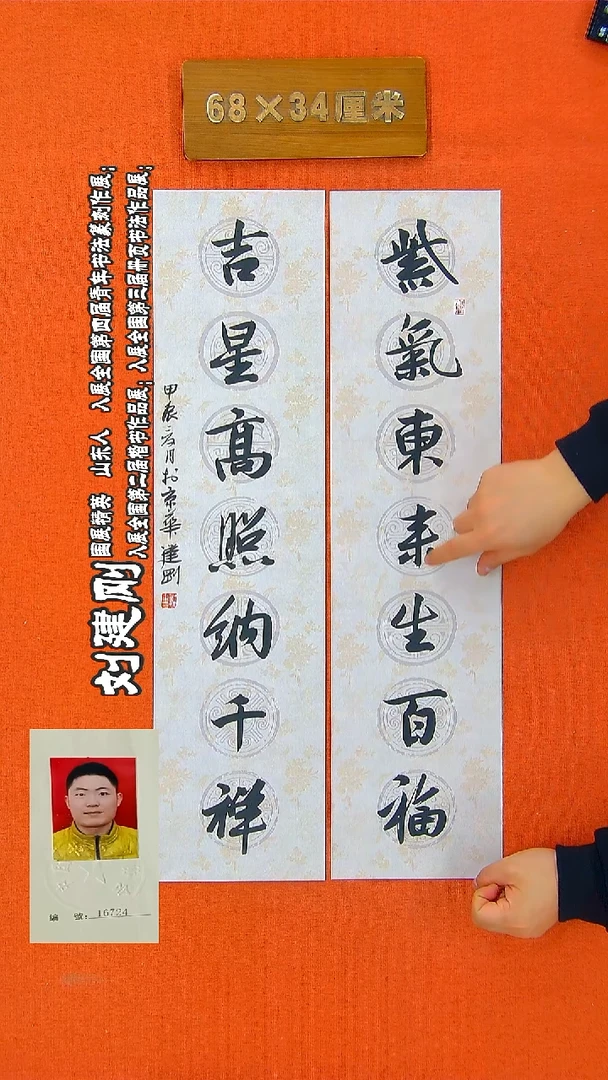 68×34厘米
紫氣東来生百福
吉星高照纳千祥
甲辰三月於京華建剛
刘建刚
国展精英 山东人 入展全国第四届青年书法篆刻作展；
入展全国第二届楷书作品展；入展全国第三届册页书法作品展；
编 號：16724